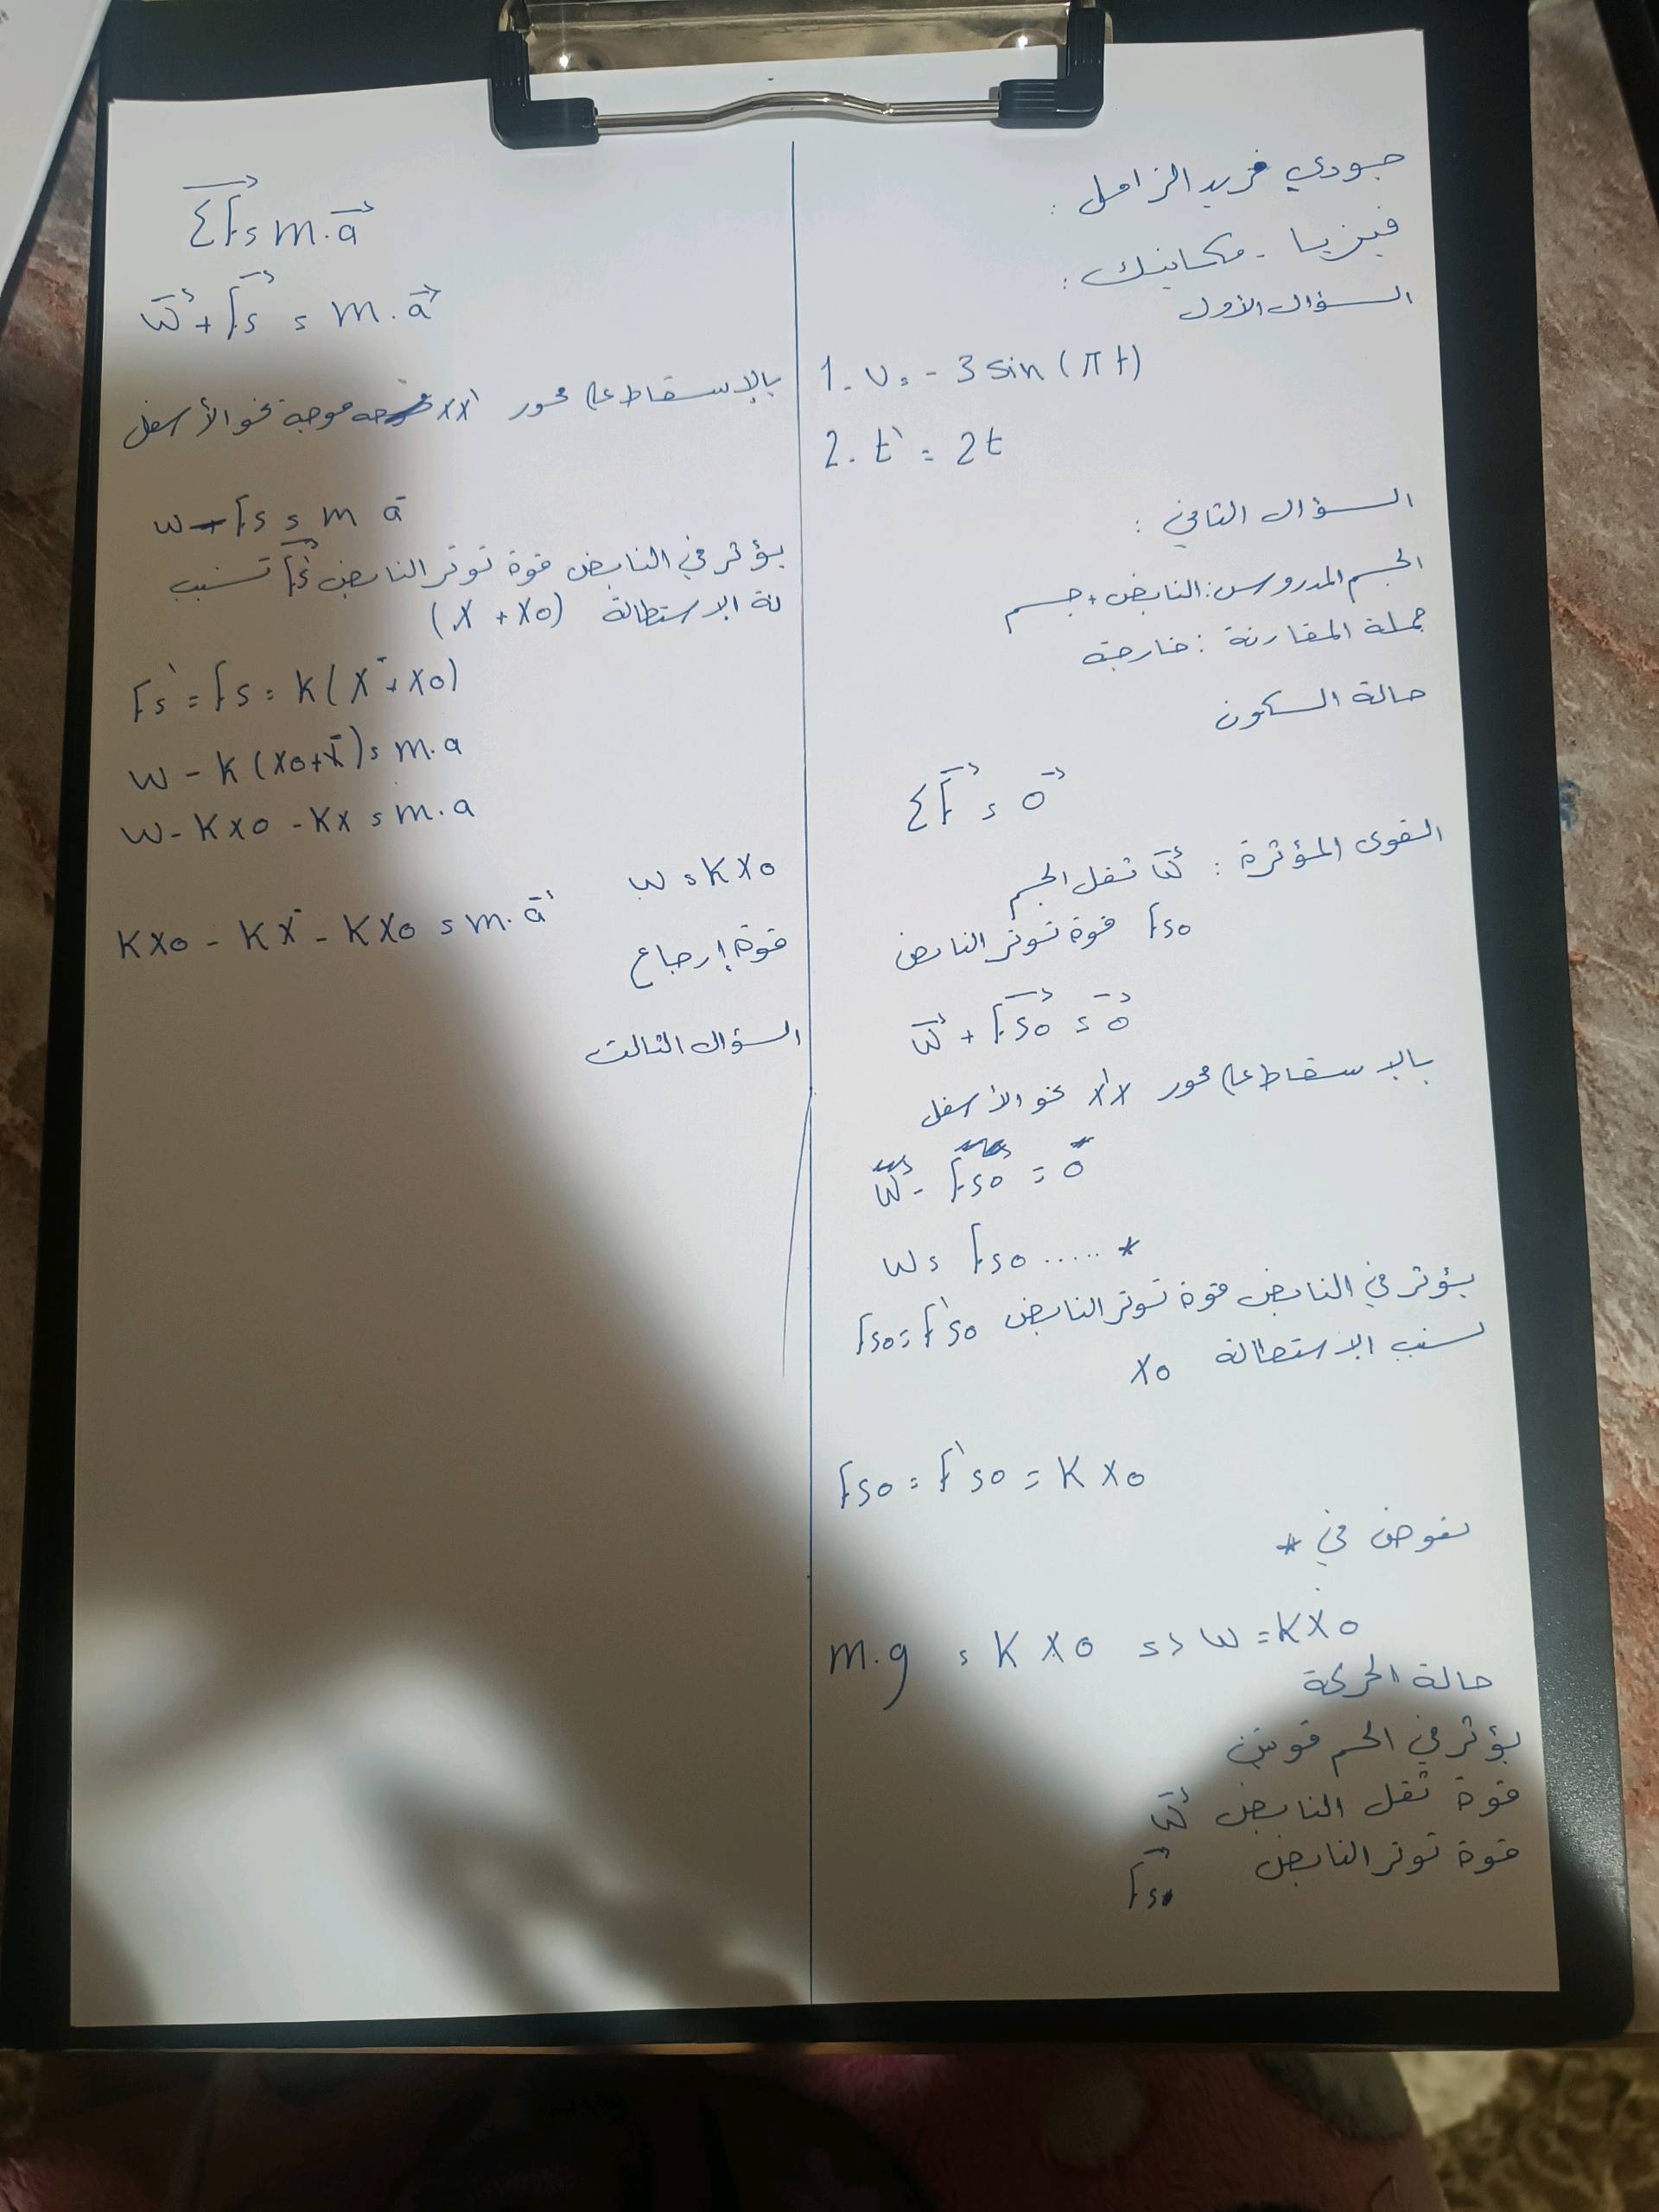 جودي فريد الزامل :
فيزيا - مكانيك :
السؤال الأول
1. v = - 3 sin (πt)
2. t' = 2t
السؤال الثاني :
الجسم المدروس : النابض + جسم
جملة المقارنة : خارجية
حالة السكون
ΣF⃗ = 0⃗
القوى المؤثرة : w⃗ ثقل الجسم
Fs0 قوة توتر النابض
w⃗ + F⃗s0 = 0⃗
بالإسقاط على محور xx' نحو الأسفل
w - Fs0 = 0
w = Fs0 ..... *
يؤثر في النابض قوة توتر النابض Fs0 = F's0
تسبب الاستطالة x0
Fs0 = F's0 = K x0
نعوض في *
m.g = K x0 => w = K x0
حالة الحركة
يؤثر في الجسم قوتين
قوة ثقل النابض w⃗
قوة توتر النابض F⃗s
ΣF⃗ = m.a⃗
w⃗ + F⃗s = m.a⃗
بالإسقاط على محور xx' موجهة نحو الأسفل
w - Fs = m a̅
يؤثر في النابض قوة توتر النابض F⃗s' تسبب
له الاستطالة (x + x0)
Fs' = Fs = K(x̅ + x0)
w - K(x0 + x̅) = m.a
w - Kx0 - Kx = m.a
w = K x0
Kx0 - Kx̅ - Kx0 = m.a̅
قوة إرجاع
السؤال الثالث